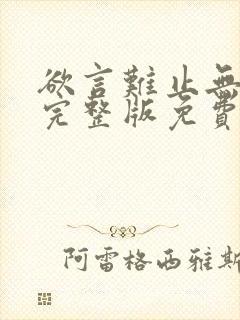 欲言難止無
完整版免費
阿雷格西雅斯